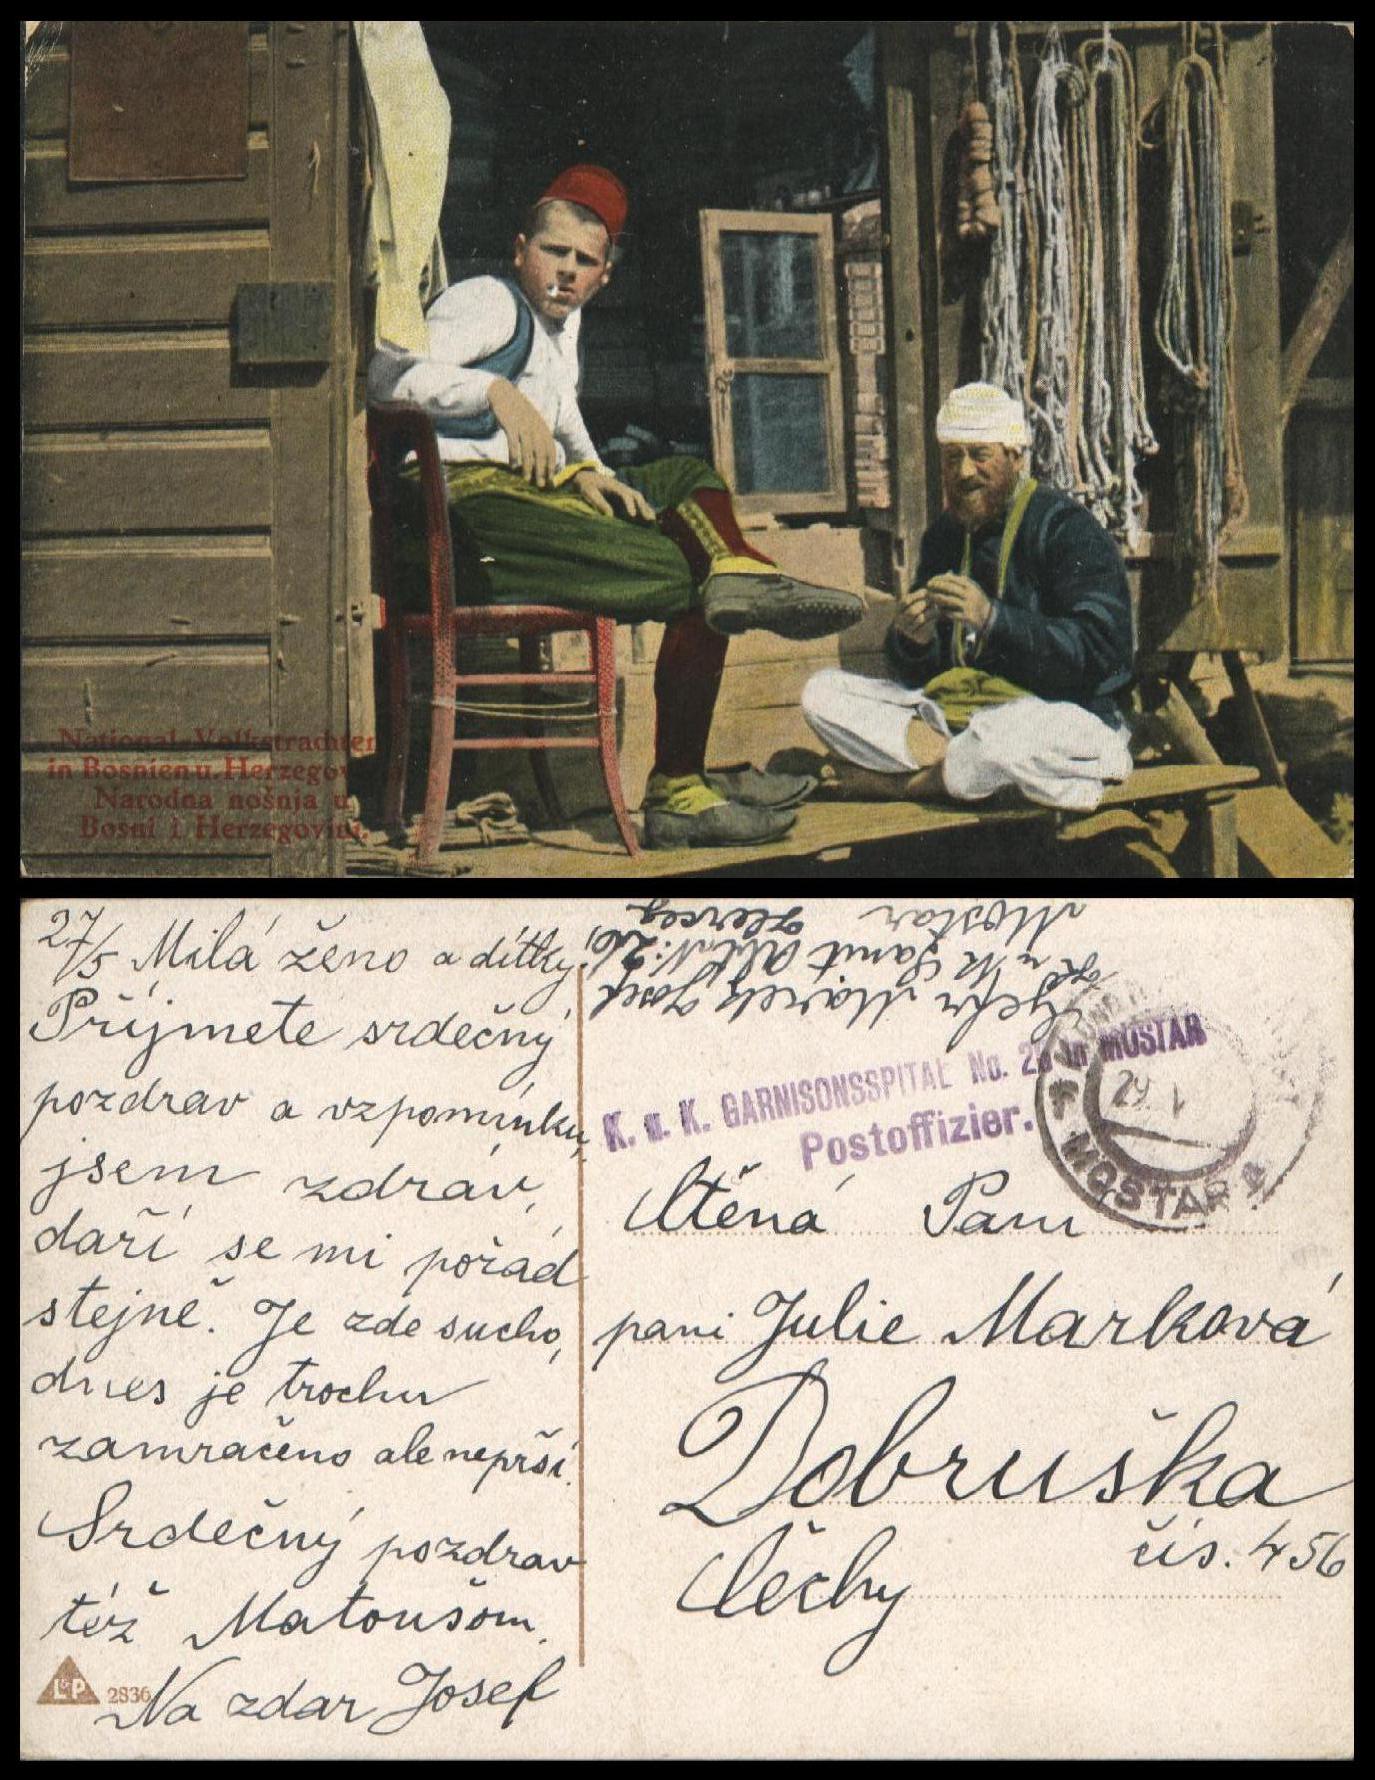 National-Volkstrachten
in Bosnien u. Herzegov
Narodna nošnja u
Bosni i Herzegovini.
27/5 Milá ženo a dítky,
Příjmete srdečný
pozdrav a vzpomínku,
jsem zdráv,
daří se mi pořád
stejně. Je zde sucho,
dnes je trochu
zamračeno ale neprší.
Srdečný pozdrav
též Matoušom.
Na zdar Josef
L&P 2836
Marek Josef
k u k Sanit Abt N: 26,
Mostar Herceg
K. u. K. GARNISONSSPITAL No. 26 in MOSTAR
Postoffizier.
MOSTAR
29
Ctěná Paní
paní Julie Marková
Dobruška
čís. 456
Čechy